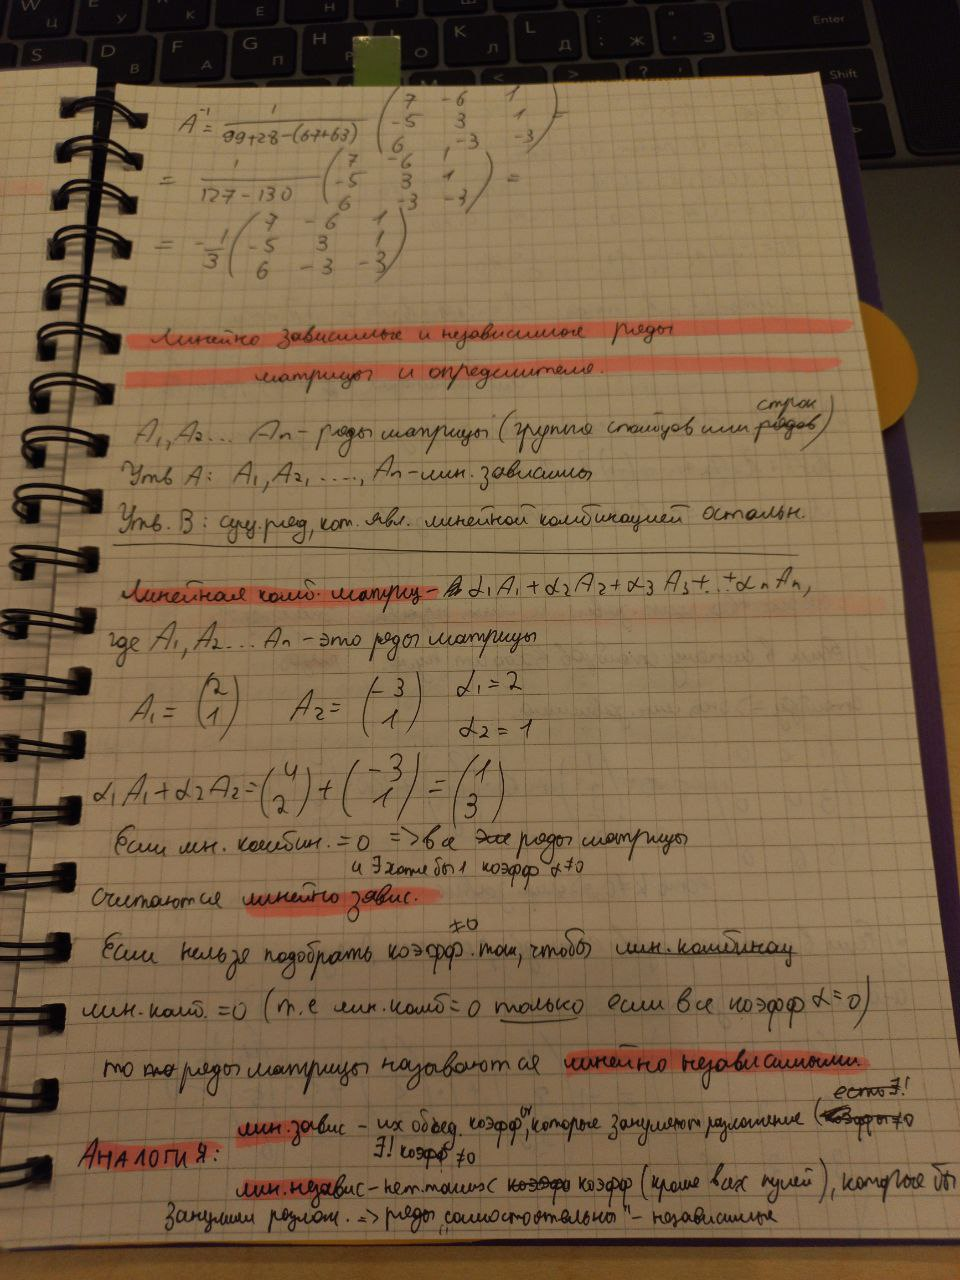 A⁻¹ = 1/(99+28-(67+63)) (7 -6 1; -5 3 1; 6 -3 -3) =
= 1/(127-130) (7 -6 1; -5 3 1; 6 -3 -3) =
= -1/3 (7 -6 1; -5 3 1; 6 -3 -3)
Линейно зависимые и независимые ряды
матрицы и определителя.
A₁, A₂... Aₙ - ряды матрицы (группа столбцов или рядов строк)
Утв А: A₁, A₂, ...., Aₙ - лин. зависимы
Утв. В: сущ. ряд, кот. явл. линейной комбинацией остальн.
Линейная комб. матриц - α₁A₁ + α₂A₂ + α₃A₃ + ... + αₙAₙ,
где A₁, A₂... Aₙ - это ряды матрицы
A₁ = (2; 1) A₂ = (-3; 1) α₁ = 2
α₂ = 1
α₁A₁ + α₂A₂ = (4; 2) + (-3; 1) = (1; 3)
Если лин. комбин. = 0 => все ряды матрицы
и ∃ хотя бы 1 коэфф α ≠ 0
считаются линейно завис.
≠0
Если нельзя подобрать коэфф. так, чтобы лин. комбинац
лин. комб. = 0 (т.е лин. комб = 0 только если все коэфф α = 0)
то ряды матрицы называются линейно независимыми.
есть ∃!
лин. завис - их объед. коэфф, которые зануляют разложение (коэффы ≠ 0
∃! коэфф ≠ 0
Аналогия:
лин. независ - нет таких коэфф коэфф (кроме всех нулей), которые бы
занулили разлож. => ряды "самостоятельны" - независимые